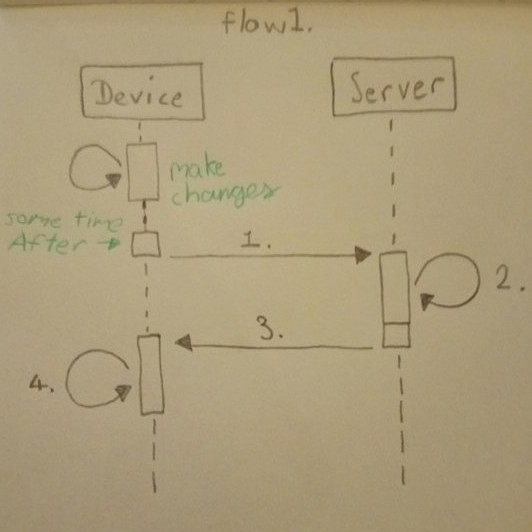 flow1.
Device
Server
make
changes
some time
After →
1.
2.
3.
4.